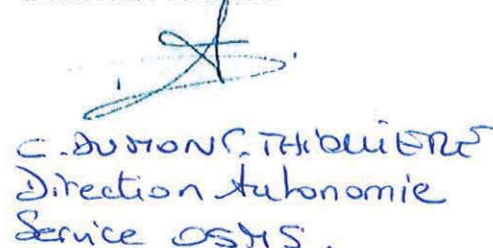 C. DUMONT. THIOLLIERE
Direction Autonomie
Service OSMS.